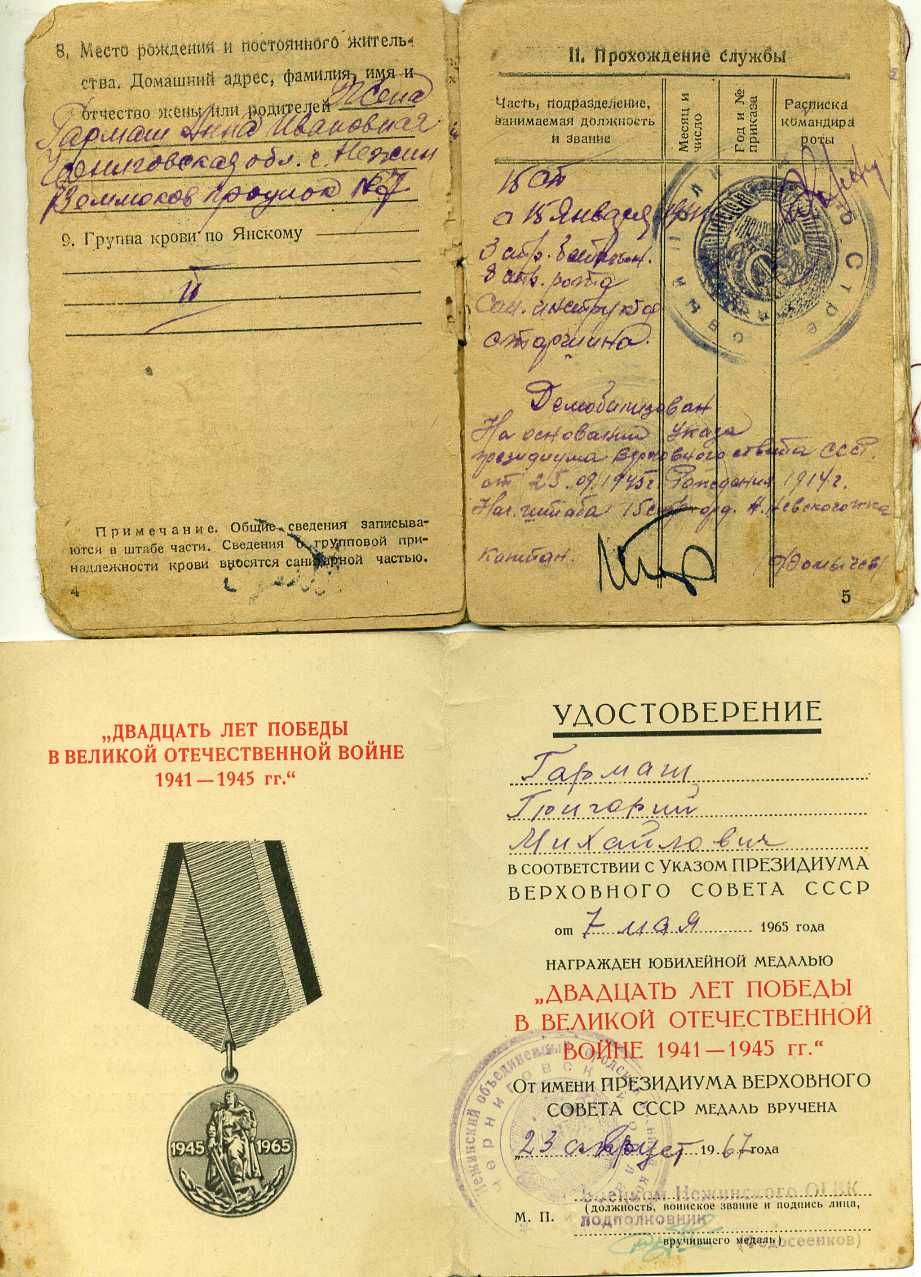 8. Место рождения и постоянного житель-
ства. Домашний адрес, фамилия, имя и
отчество жены или родителей Жена
Гармаш Анна Ивановная
Черниговская обл. г. Нежин
проулок №7
9. Группа крови по Янскому
II
Примечание. Общие сведения записыва-
ются в штабе части. Сведения о групповой при-
надлежности крови вносятся санитарной частью.
4
II. Прохождение службы
Часть, подразделение,
занимаемая должность
и звание
Месяц и
число
Год и №
приказа
Расписка
командира
роты
с 15 Января
3 стр. батальон.
8 стр. рота
Сан. инструктор
старшина.
Демобилизован
На основании Указа
президиума Верховного СССР.
от 25.09.1945г. Рождения 1914г.
Нач. штаба орд. А. Невского
капитан.
5
„ДВАДЦАТЬ ЛЕТ ПОБЕДЫ
В ВЕЛИКОЙ ОТЕЧЕСТВЕННОЙ ВОЙНЕ
1941—1945 гг.“
1945 1965
УДОСТОВЕРЕНИЕ
Гармаш
Григорий
Михайлович
В СООТВЕТСТВИИ С УКАЗОМ ПРЕЗИДИУМА
ВЕРХОВНОГО СОВЕТА СССР
от 7 мая 1965 года
НАГРАЖДЕН ЮБИЛЕЙНОЙ МЕДАЛЬЮ
„ДВАДЦАТЬ ЛЕТ ПОБЕДЫ
В ВЕЛИКОЙ ОТЕЧЕСТВЕННОЙ
ВОЙНЕ 1941—1945 гг.“
ОТ ИМЕНИ ПРЕЗИДИУМА ВЕРХОВНОГО
СОВЕТА СССР МЕДАЛЬ ВРУЧЕНА
„23 август 1967 года
Военком Нежинского ОГВК
М. П. (должность, воинское звание и подпись лица,
подполковник
вручившего медаль)
(Федосеенков)